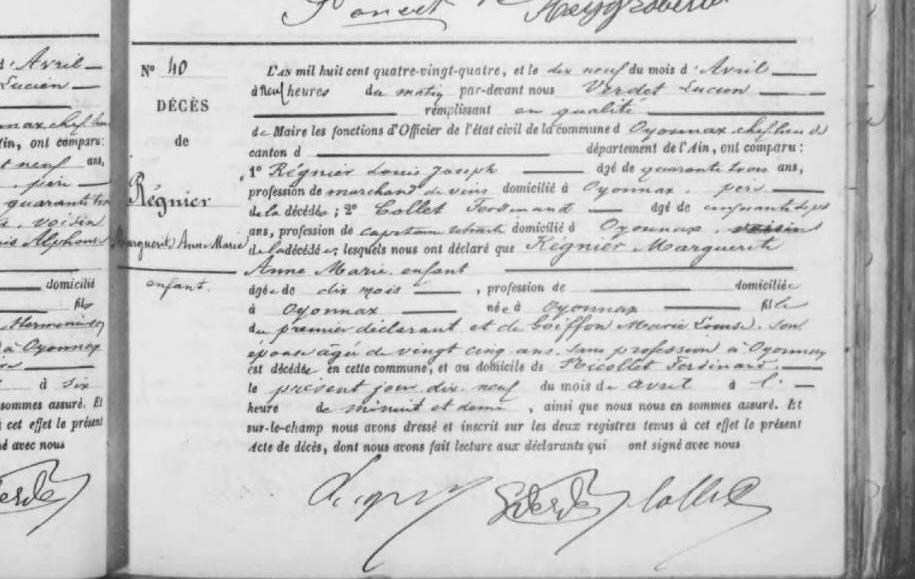 Poncet
d'Avril
Lucien
N° 40
DÉCÈS
de
Régnier
Marguerite Anne Marie
enfant.
L'AN mil huit cent quatre-vingt-quatre, et le dix neuf du mois d'Avril
à neuf heures du matin par-devant nous Verdet Lucien
remplissant en qualité
de Maire les fonctions d'Officier de l'état civil de la commune d Oyonnax chef lieu de
canton d département de l'Ain, ont comparu :
1° Régnier Louis Joseph âgé de quarante trois ans,
profession de marchand de vins domicilié à Oyonnax, père
de la décédée ; 2° Collet Ferdinand âgé de cinquante sept
ans, profession de capitaine retraité domicilié à Oyonnax, voisin
de la décédée, lesquels nous ont déclaré que Régnier Marguerite
Anne Marie, enfant
âgée de dix mois, profession de domiciliée
à Oyonnax née à Oyonnax fille
du premier déclarant et de Goiffon Marie Louise, son
épouse âgée de vingt cinq ans, sans profession à Oyonnax
est décédée en cette commune, et au domicile de Ferdinand
le présent jour dix neuf du mois de avril à l'
heure de minuit et demi, ainsi que nous nous en sommes assuré. Et
sur-le-champ nous avons dressé et inscrit sur les deux registres tenus à cet effet le présent
Acte de décès, dont nous avons fait lecture aux déclarants qui ont signé avec nous
Verdet Collet
ont comparu :
neuf ans,
père
quarante
voisin
Alphonse
domicilié
fils
à Oyonnax
à six
sommes assuré. Et
à cet effet le présent
né avec nous